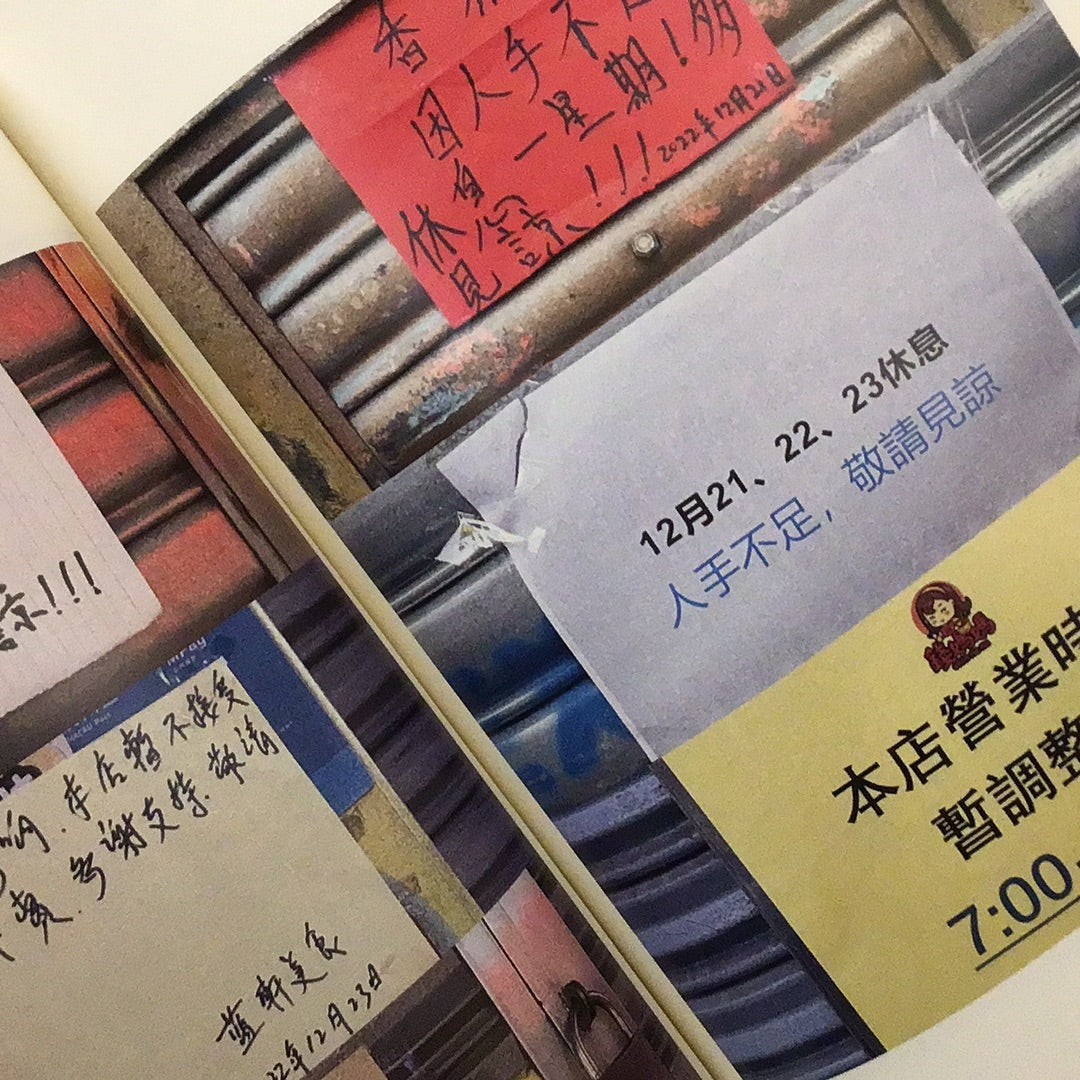 因人手不足
休息一星期！多
見諒！！！
2022年12月21日
12月21、22、23休息
人手不足，敬請見諒
本店營業時
暫調整
7:00
諒!!!
MPay
MACAU Pass
本店暫不接受
多謝支持.敬請
藍軒美食
22年12月23日